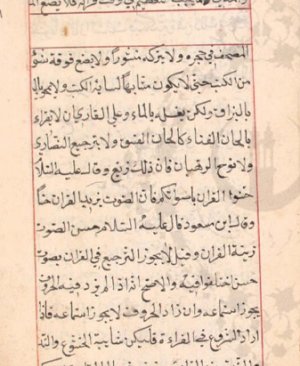 المصحف في حجره ولا يتركه منثورا ولا يضع فوقه شيئ
من الكتب حتى لا يكون متابها لسايه الكتب ولا يمحو بالله
بالبزاق ولكن يغسله بالماء وعلى القاري ان لا يقراء
بالحان الغناء كالحان الفسق ولا بترجيع النصارى
ولا نوح الرهبان فان ذلك زيغ وقال عليه السلا
حسنوا القران باصواتكم فان الصوت يزيد القران حسنا
وقال ابن مسعود قال عليه السلام حسن الصوت
زينة القران وقيل لا يجوز الترجيع في القران بصوت
حسن اخذا فواقيه والاصح انه اذا لم يزد فيه الحروف
يجوز استماعه وان زاد الحروف لا يجوز استماعه فاذا
اراد الشروع في القراءة فليكن شانه الخشوع والتد